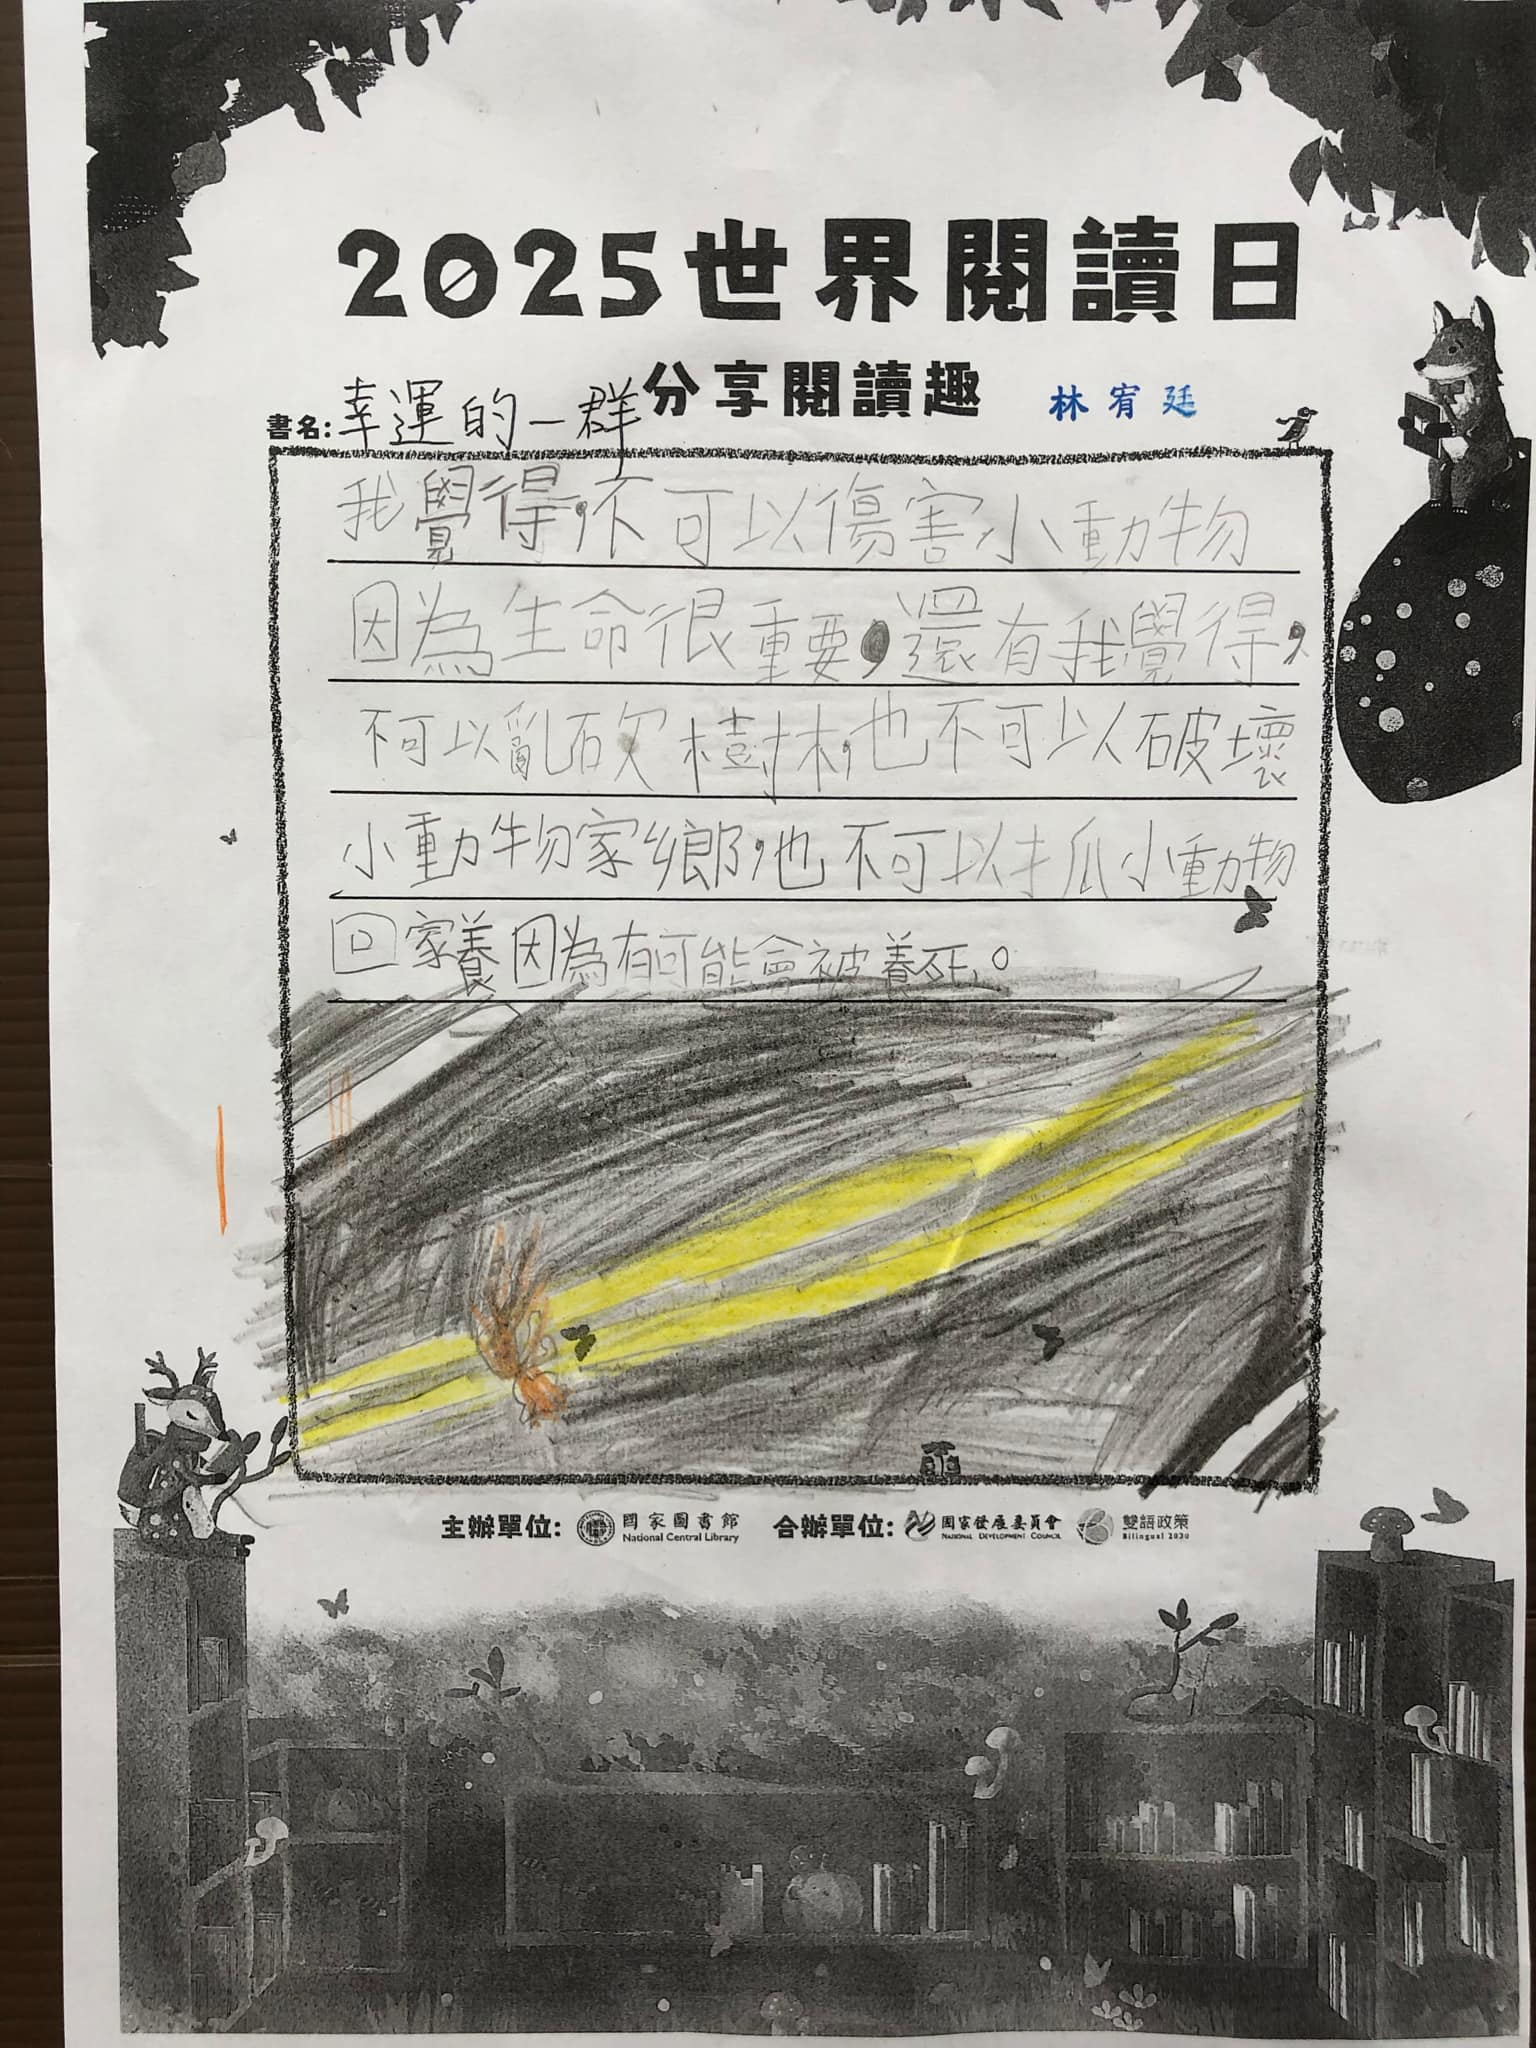 2025世界閱讀日
分享閱讀趣
林宥廷
書名:幸運的一群
我覺得,不可以傷害小動物
因為生命很重要,還有我覺得,
不可以亂砍樹林,也不可以破壞
小動物家鄉,也不可以抓小動物
回家養因為有可能會被養死。
主辦單位: 國家圖書館 National Central Library 合辦單位: 國家發展委員會 National Development Council 雙語政策 Bilingual 2030